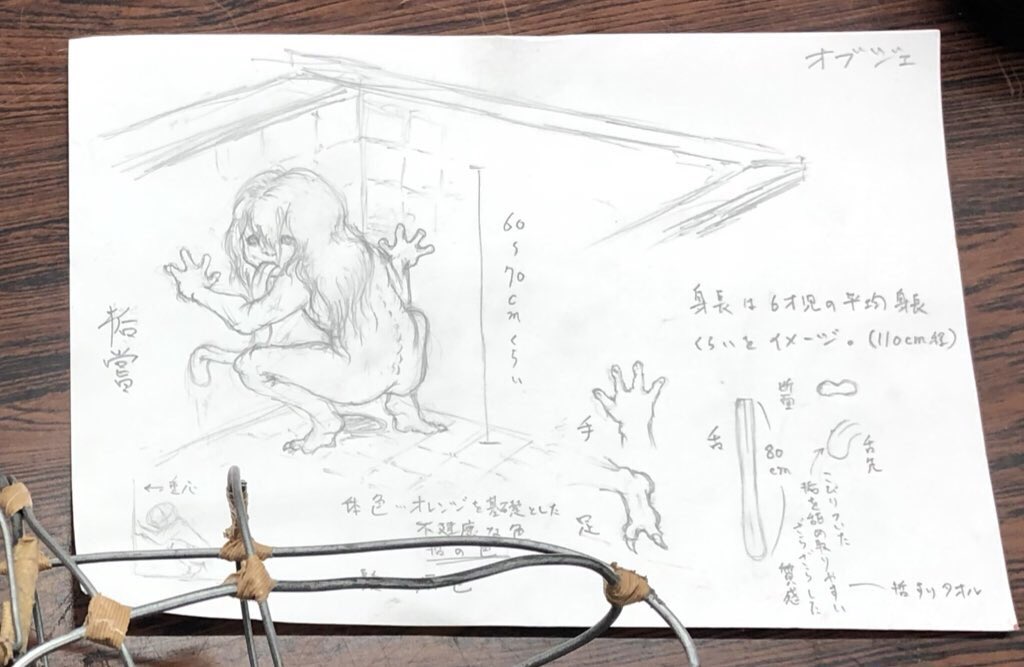 オブジェ
垢嘗
60
〜
70
cm
くらい
身長は6才児の平均身長
くらいをイメージ。(110cm程)
手
足
舌
80
cm
断面
舌先
こびりついた
垢を舐め取りやすい
ざらざらした
質感
垢すりタオル
←重心
体色…オレンジを基礎とした
不健康な色
垢の色